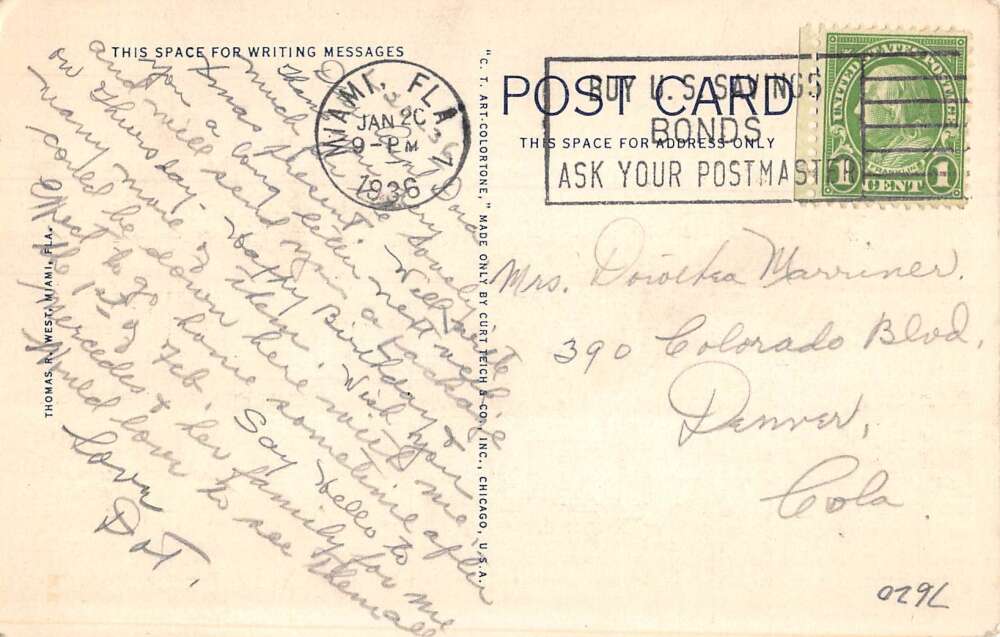 THIS SPACE FOR WRITING MESSAGES
Thank very
much lovely
Xmas present. Will write
you a long letter next week
and will send you a package
on Thursday. Happy Birthday &
many more of them. Wish you
could be down here with me.
Expect to go home sometime after
the 1st of Feb. Say Hello to
Mercedes & her family for me
Would love to see them all
Love
Dot.
THOMAS R. WEST, MIAMI, FLA.
"C. T. ART-COLORTONE," MADE ONLY BY CURT TEICH & CO., INC., CHICAGO, U.S.A.
MIAMI, FLA
JAN
9-PM
1936
POST CARD
THIS SPACE FOR ADDRESS ONLY
BUY U.S. SAVINGS
BONDS
ASK YOUR POSTMASTER
UNITED STATES POSTAGE
FRANKLIN
1 CENT 1
Mrs. Dorothea Marriner.
390 Colorado Blvd,
Denver,
Colo.
029L